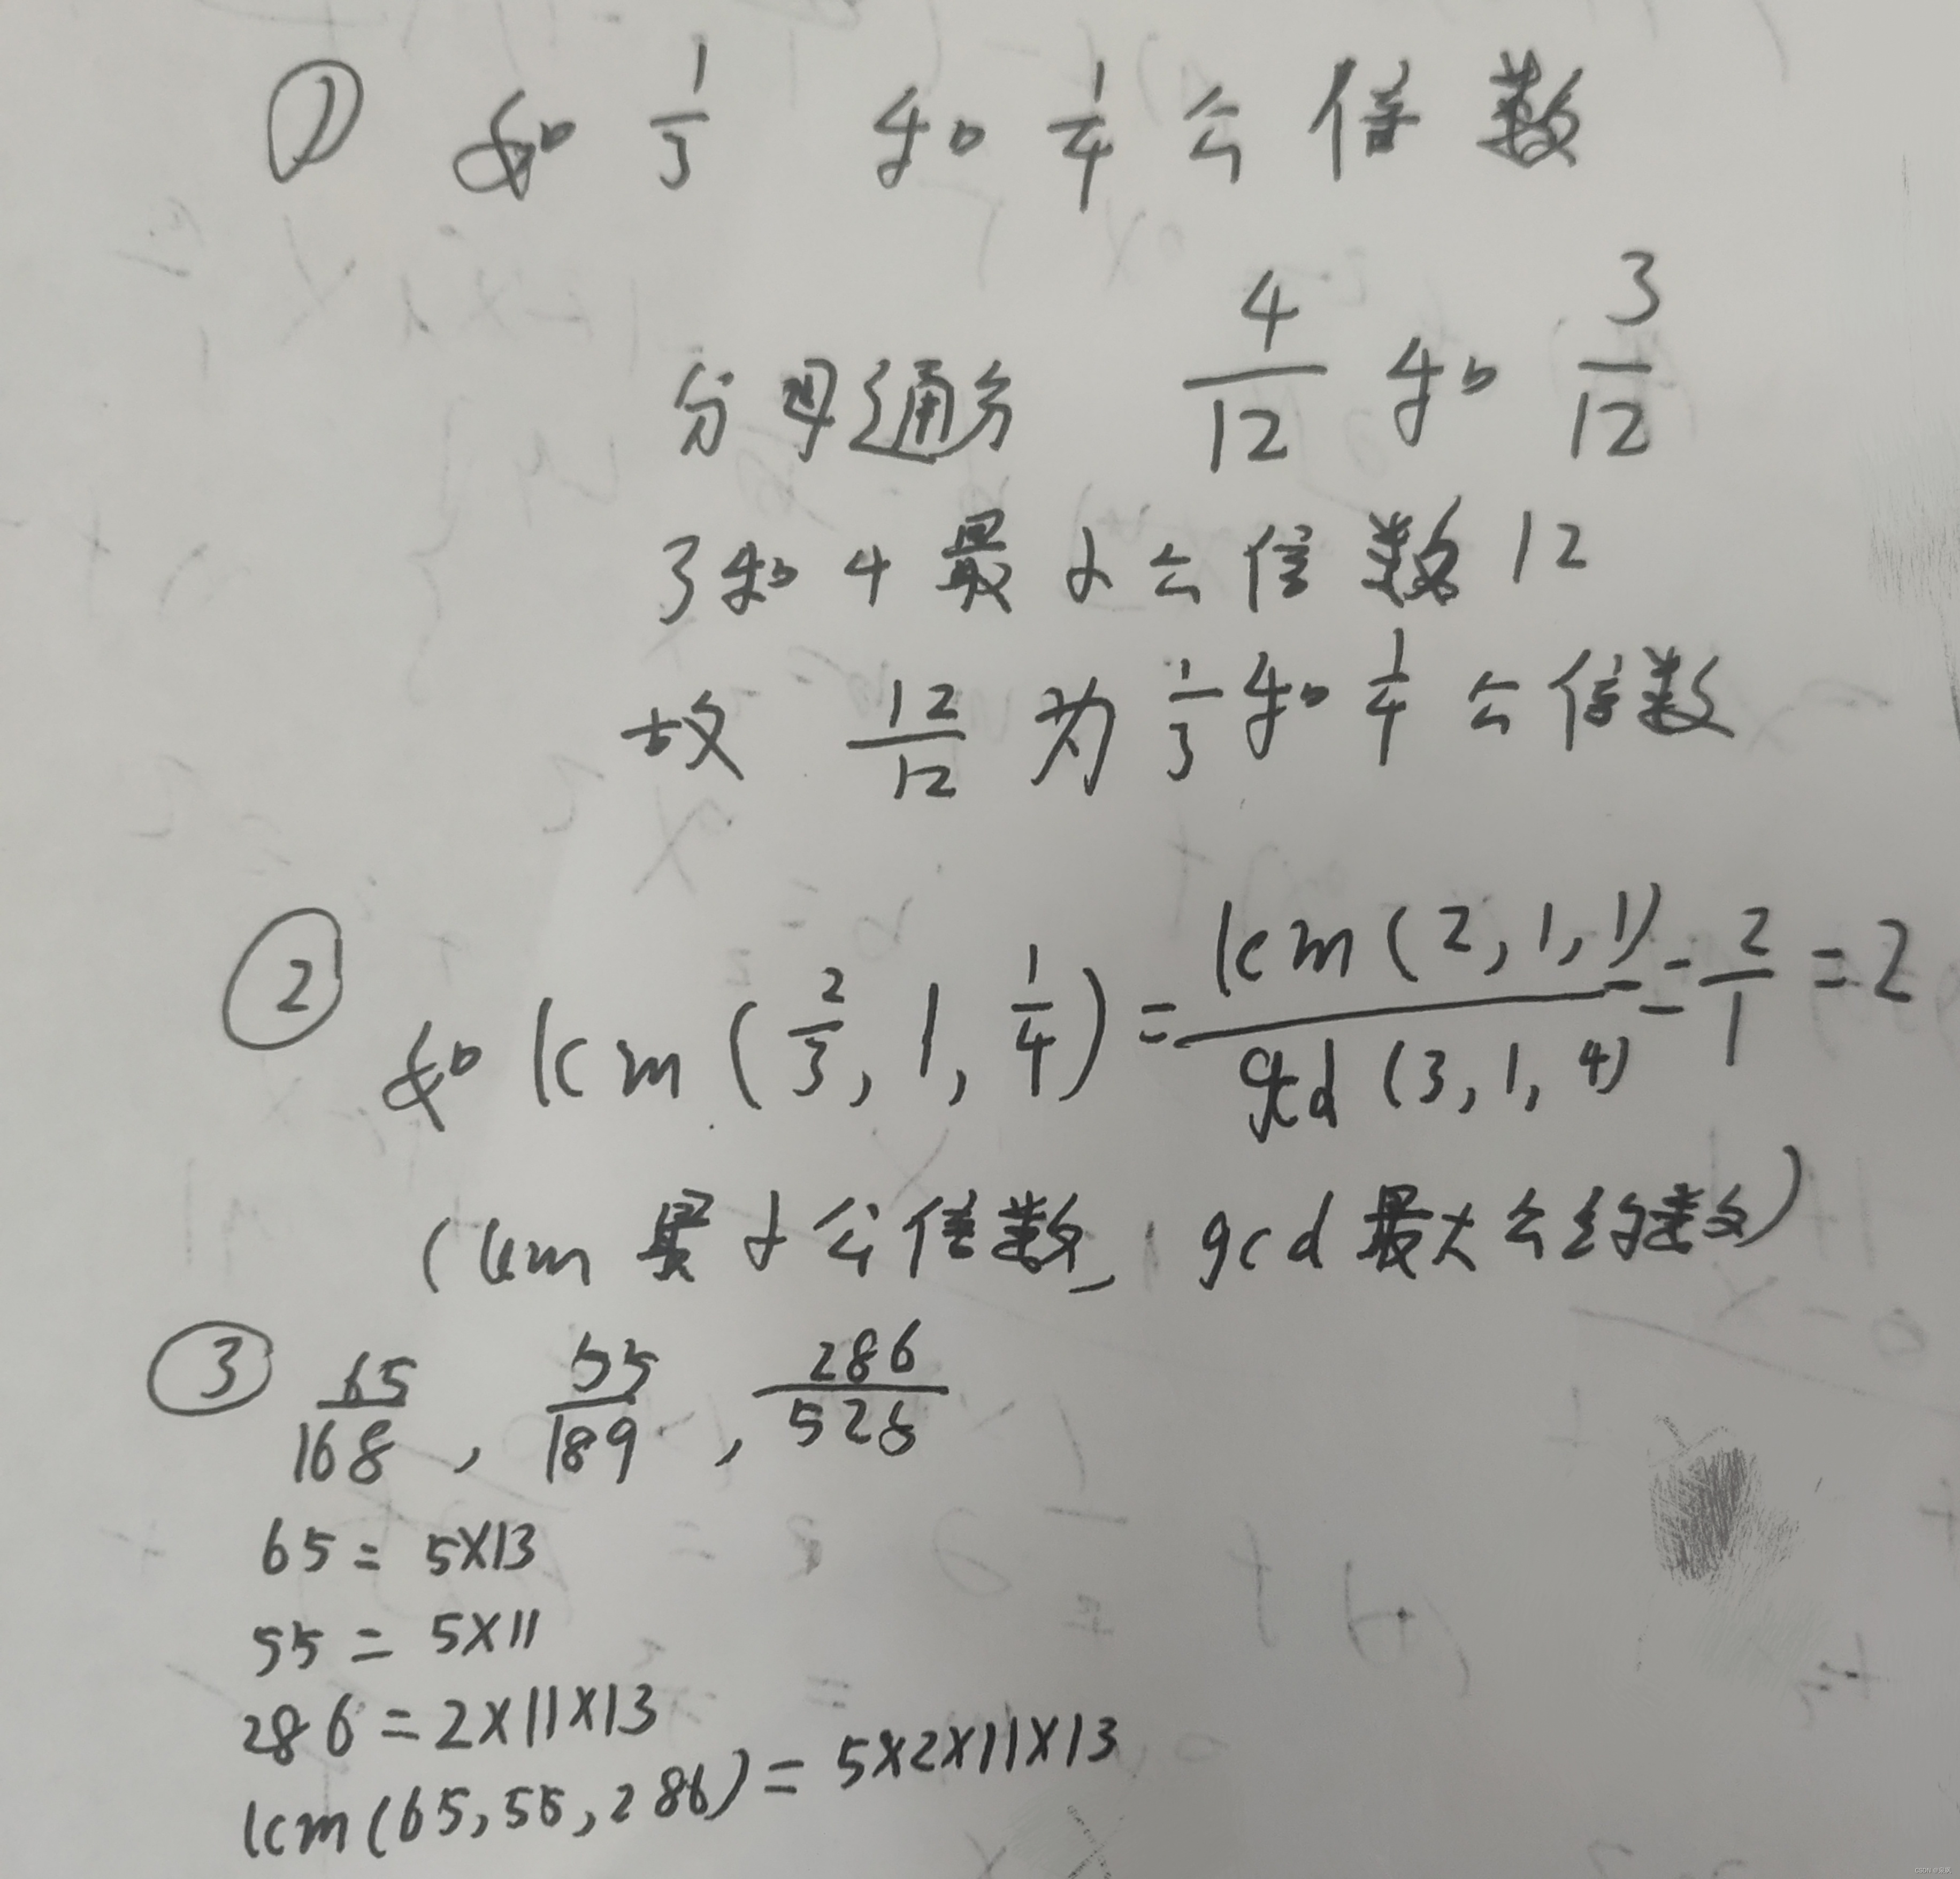 ① 如 1/3 和 1/4 公倍数
分母通分 4/12 和 3/12
3和4最小公倍数12
故 12/12 为 1/3 和 1/4 公倍数
② 如 lcm(2/3, 1, 1/4) = lcm(2, 1, 1)/gcd(3, 1, 4) = 2/1 = 2
(lcm 最小公倍数, gcd 最大公约数)
③ 65/168, 55/189, 286/528
65 = 5×13
55 = 5×11
286 = 2×11×13
lcm(65,55,286) = 5×2×11×13